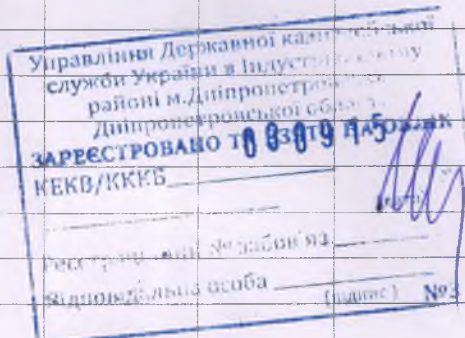 Управління Державної казначейської
служби України в Індустріальному
районі м.Дніпропетровська
Дніпропетровської області
ЗАРЕЄСТРОВАНО ТА ВЗЯТО НА ОБЛІК
КЕКВ/ККК
№ зобов'яз.
Відповідальна особа
(підпис) №3